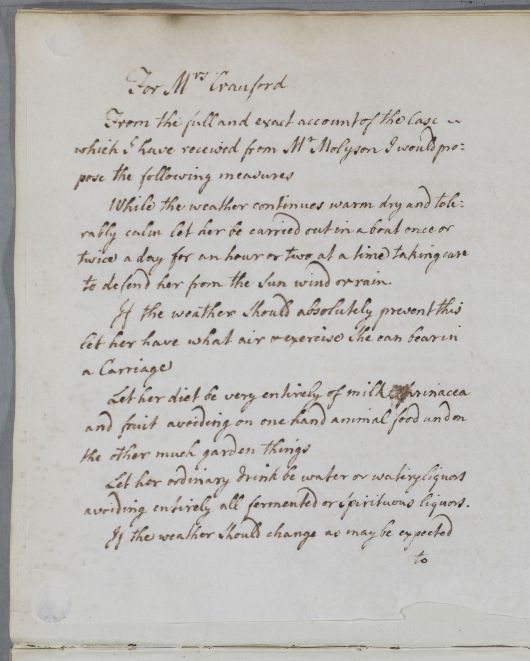 For Mrs Crauford
From the full and exact account of the Case
which I have received from Mr Molyson I would pro=
pose the following measures
While the weather continues warm dry and tole=
rably calm let her be carried out in a boat once or
twice a day for an hour or two at a time taking care
to defend her from the Sun wind or rain.
If the weather should absolutely prevent this
let her have what air & exercise She can bear in
a Carriage
Let her diet be very entirely of milk farinacea
and fruit avoiding on one hand animal food and on
the other much garden things
Let her ordinary drink be water or watery liquors
avoiding entirely all fermented or Spirituous liquors.
If the weather Should change as may be expected
to